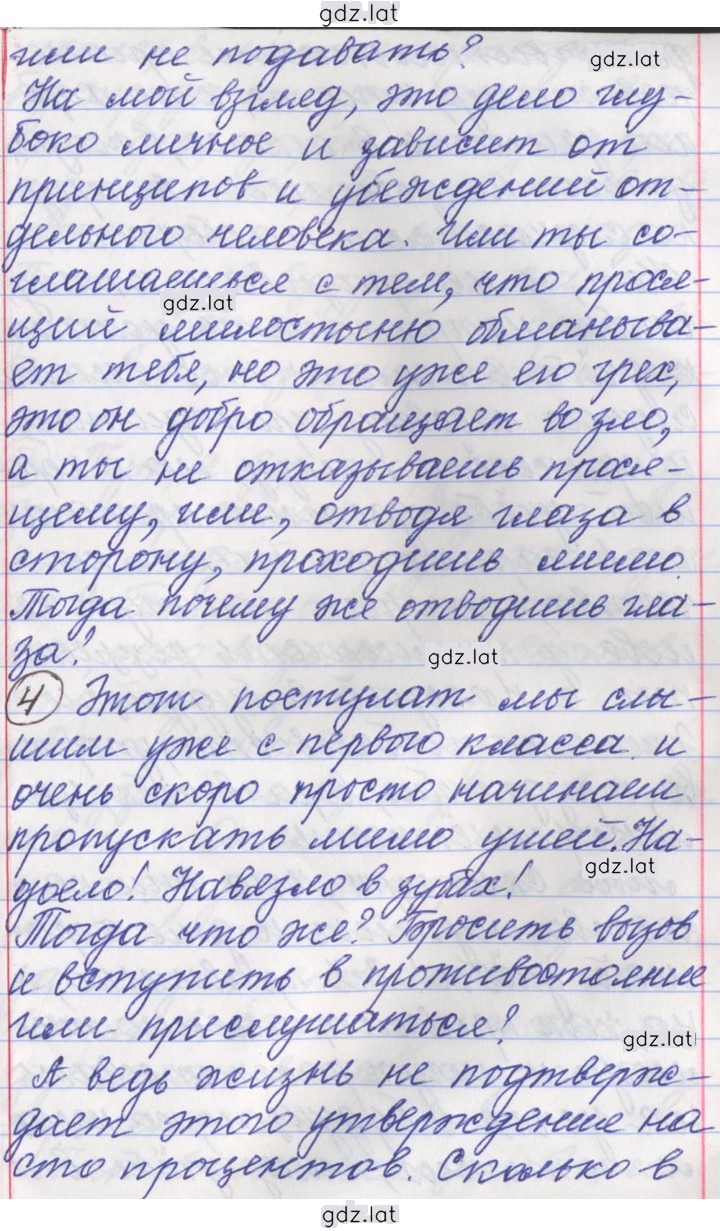 gdz.lat
или не подавать?
gdz.lat
На мой взгляд, это дело глу-
боко личное и зависит от
принципов и убеждений от-
дельного человека. Или ты со-
глашаешься с тем, что прося-
gdz.lat
щий милостыню обманыва-
ет тебя, но это уже его грех,
это он добро обращает во зло,
а ты не отказываешь прося-
щему, или, отводя глаза в
сторону, проходишь мимо.
Тогда почему же отводишь гла-
за?
gdz.lat
4 Этот постулат мы слы-
шим уже с первого класса и
очень скоро просто начинаем
пропускать мимо ушей. На-
gdz.lat
доело! Навязло в зубах!
Тогда что же? Бросить вызов
и вступить в противостояние
или прислушаться?
gdz.lat
А ведь жизнь не подтверж-
дает этого утверждения на
сто процентов. Сколько в
gdz.lat